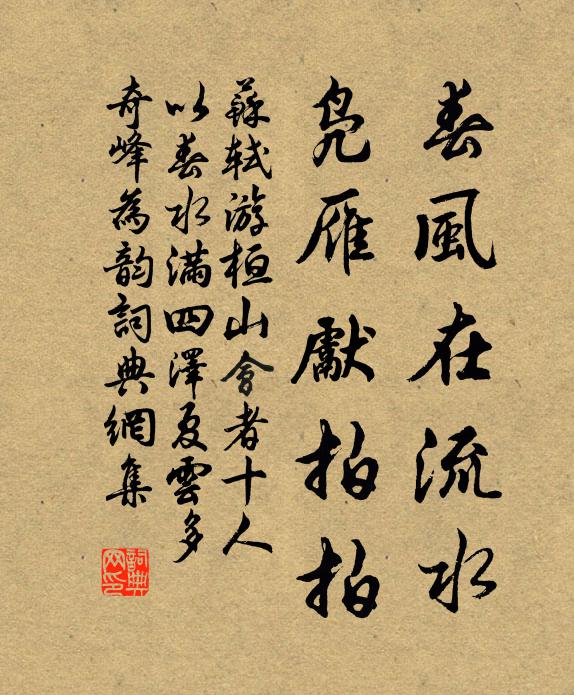 春風在流水
鳧雁獻拍拍
蘇軾游桓山會者十人
以春水滿四澤夏雲多
奇峰為韵詞典網集
詞典
网印